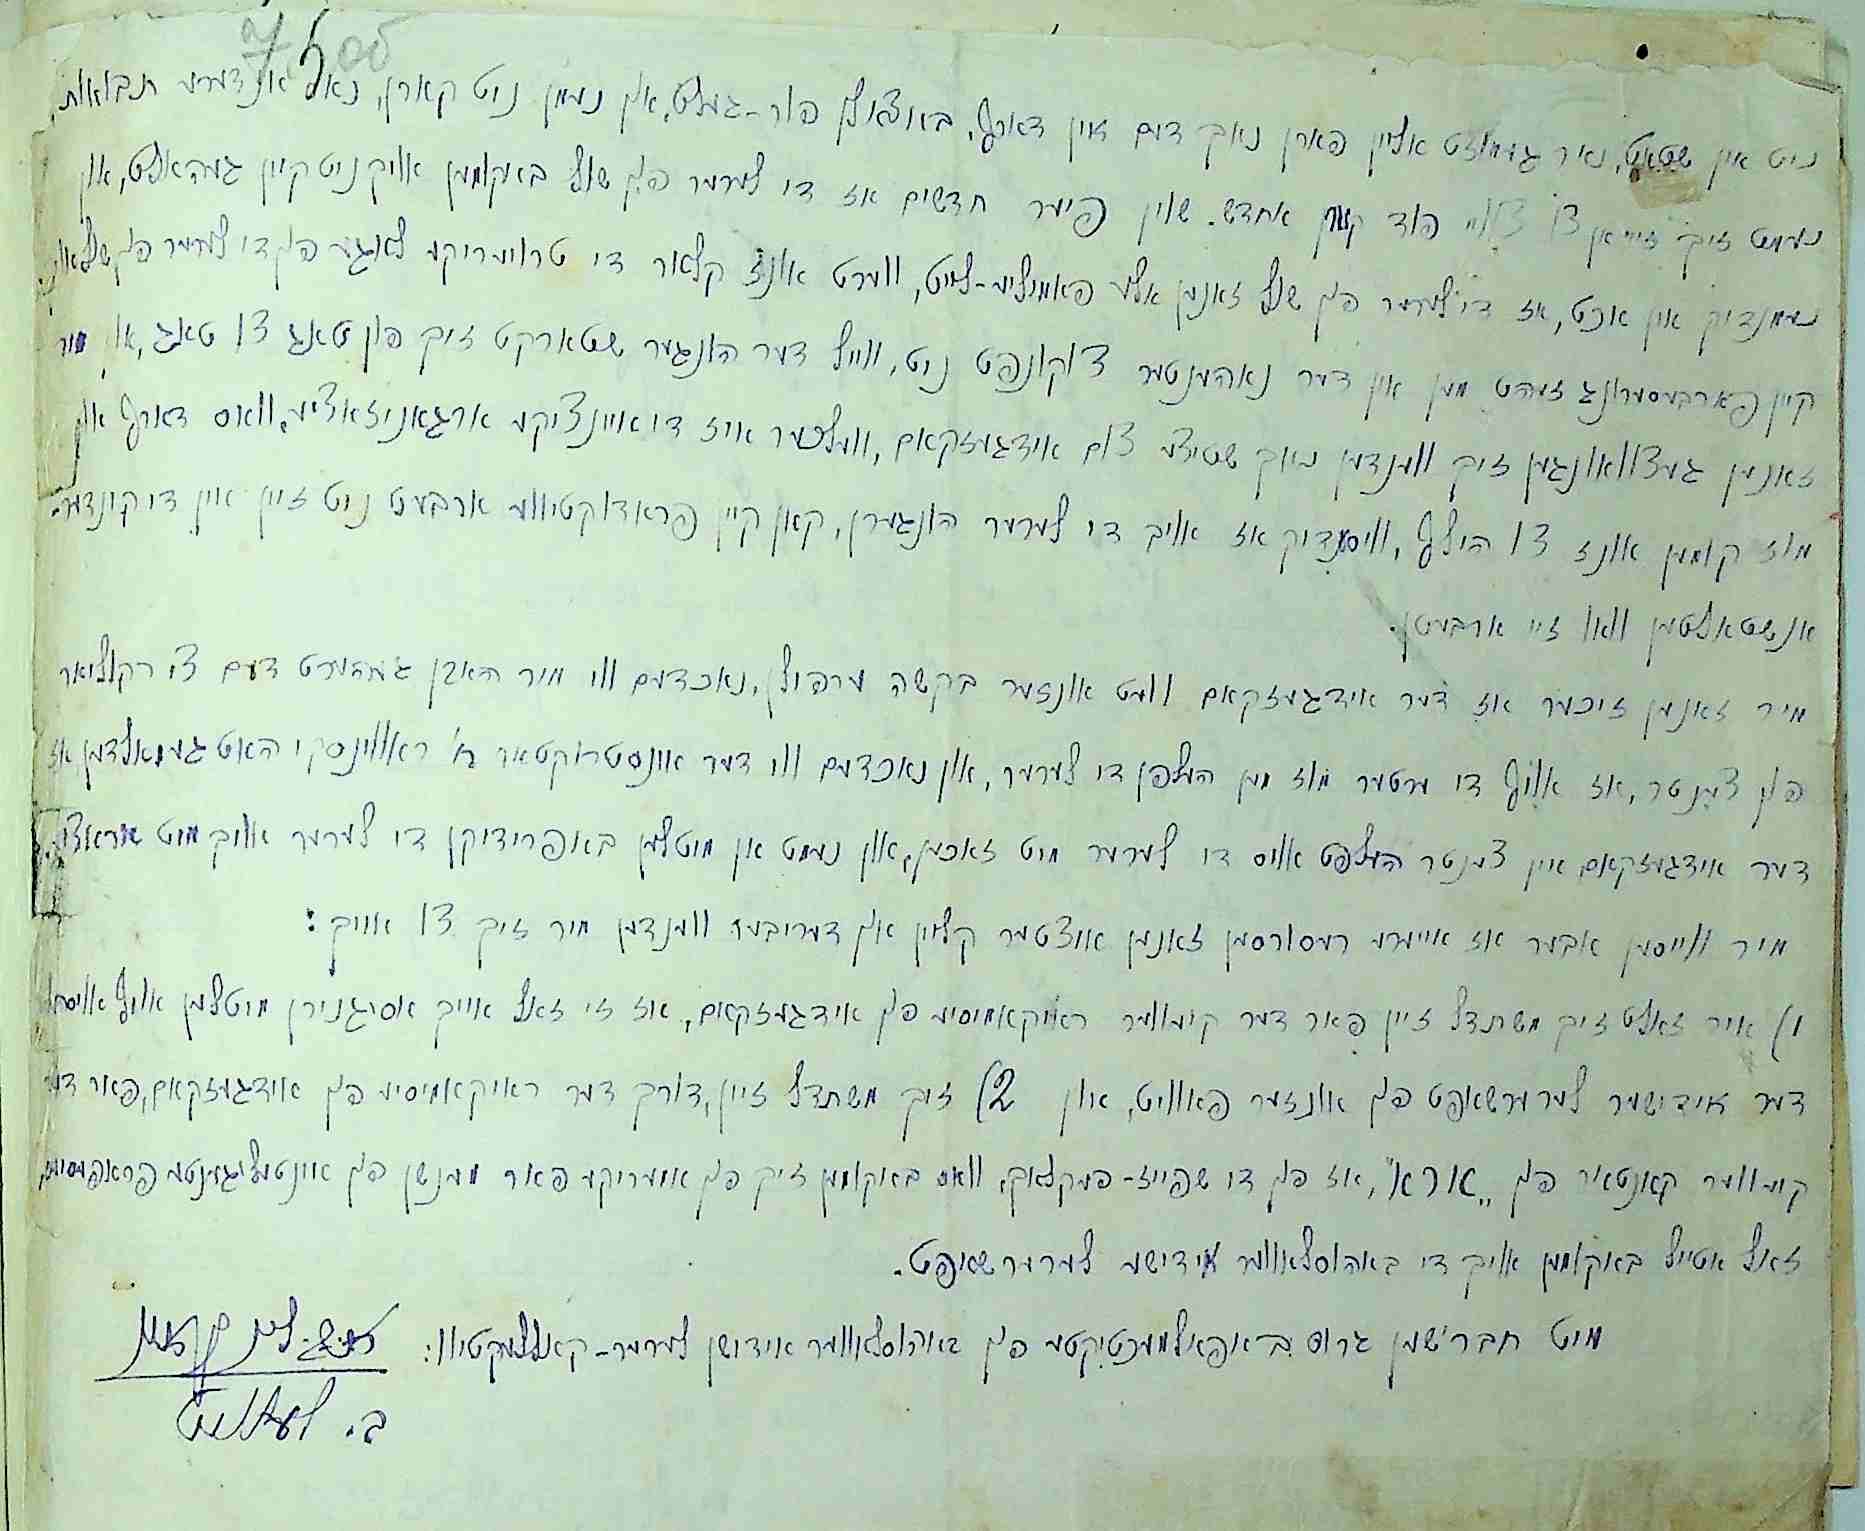 ניט אין שטאט, נאר געמוזט אליין פארן נאך דעם אין דארף, באצאלן פור-געלט, און נעמען ניט קארן, נאר אנדערע תבואות,
נעמט זיך זיי אן צו צוויי פוד קארן אחדש. שוין פיער חדשים אז די לערער פון שול באקומען אויך ניט קיין געהאלט, און
נעמענדיק אין אכט, אז די לערער פון שול זאנען אלע פאמיליע-לייט, ווערט אונז קלאר די טרויעריקע לאגע פון די לערער פון שול און
קיין פארבעסערונג זעהט מען אין דער נאהענטער צוקונפט ניט, ווייל דער הונגער שטארקט זיך פון טאג צו טאג, און מיר
זאנען געצוואונגען זיך ווענדען נאך שטיצע צום אידגעזקאם, וועלכער איז די איינציקע ארגאניזאציע, וואס דארף און
מוז קומען אונז צו הילף, וויסענדיק אז אויב די לערער הונגערן, קאן קיין פראדוקטיווע ארבעט ניט זיין אין די קינדער-
אנשטאלטען וואו זיי ארבעטן.
מיר זאנען זיכער אז דער אידגעזקאם וועט אונזער בקשה ערפולן, נאכדעם ווי מיר האבן געהערט דעם צירקוליאר
פון צענטר, אז אויף די ערטער מוז מען העלפן די לערער, און נאכדעם ווי דער אינסטרוקטאר ח' ראווינסקי האט געמאלדען אז
דער אידגעזקאם אין צענטר העלפט אויס די לערער מיט זאכען, און נעמט אן מיטלען באפרידיקן די לערער אויך מיט
מיר ווייסען אבער אז אייערע רעסורסען זאנען איצטער קליין און דעריבער ווענדען מיר זיך צו אייך:
1) איר זאלט זיך משתדל זיין פאר דער קיעווער ראיקאמיסיע פון אידגעזקאם, אז זי זאל אייך אסיגנירן מיטלען אויף
דער אידישער לערערשאפט פון אונזער פאוויט, און 2) זיך משתדל זיין, דורך דער ראיקאמיסיע פון אידגעזקאם, פאר דער
קיעווער קאנטאר פון „ארא", אז פון די שפייז-פעקלאך, וואס באקומען זיך פון אמעריקע פאר מענשן פון אינטעליגענטע פראפעסיעס,
זאל אטייל באקומען אויך די באהוסלאווער אידישע לערערשאפט.
מיט חבר'שען גרוס באפאלמעכטיקטע פון באהוסלאווער אידישן לערער-קאלעקטיוו:
ב.